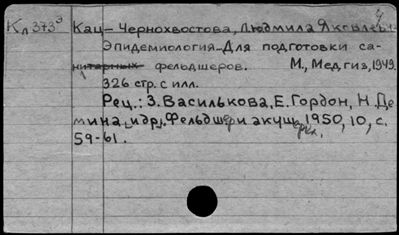 Кл373э Кац-Чернохвостова, Людмила Яковлевна
Эпидемиология-Для подготовки са-
нитарных фельдшеров. М., Медгиз, 1949.
326 стр. с илл.
Рец.: З. Василькова, Е. Гордон, Н. Де
мина и др. Фельдшер и акушерка, 1950, 10, с.
59-61.